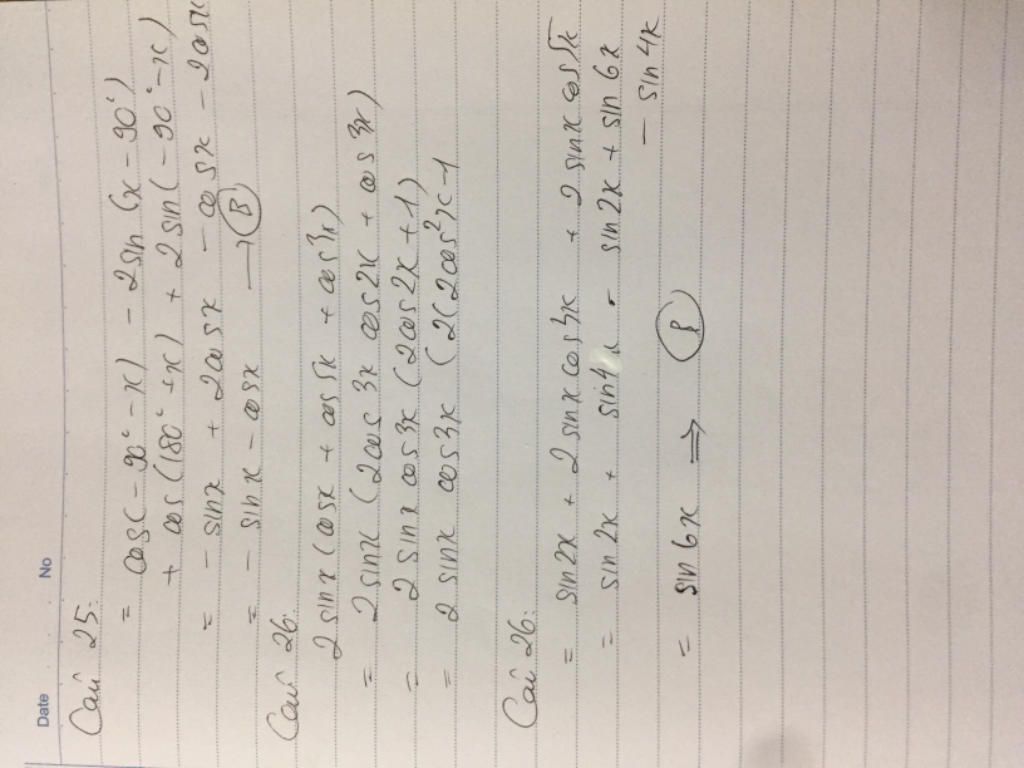 Date No
Câu 25:
= cos(-90° - x) - 2sin(x - 90°)
+ cos(180° + x) + 2sin(-90° - x)
= - sinx + 2cosx - cosx - 2cosx
= - sinx - cosx → B
Câu 26:
2 sinx (cosx + cos5x + cos3x)
= 2sinx (2cos 3x cos2x + cos3x)
= 2 sinx cos3x (2cos2x + 1)
= 2 sinx cos3x (2(2cos²x - 1
Câu 26:
= sin2x + 2sinxcos3x + 2 sinx cos5x
= sin2x + sin4x - sin2x + sin6x
- sin4x
= sin6x ⇒